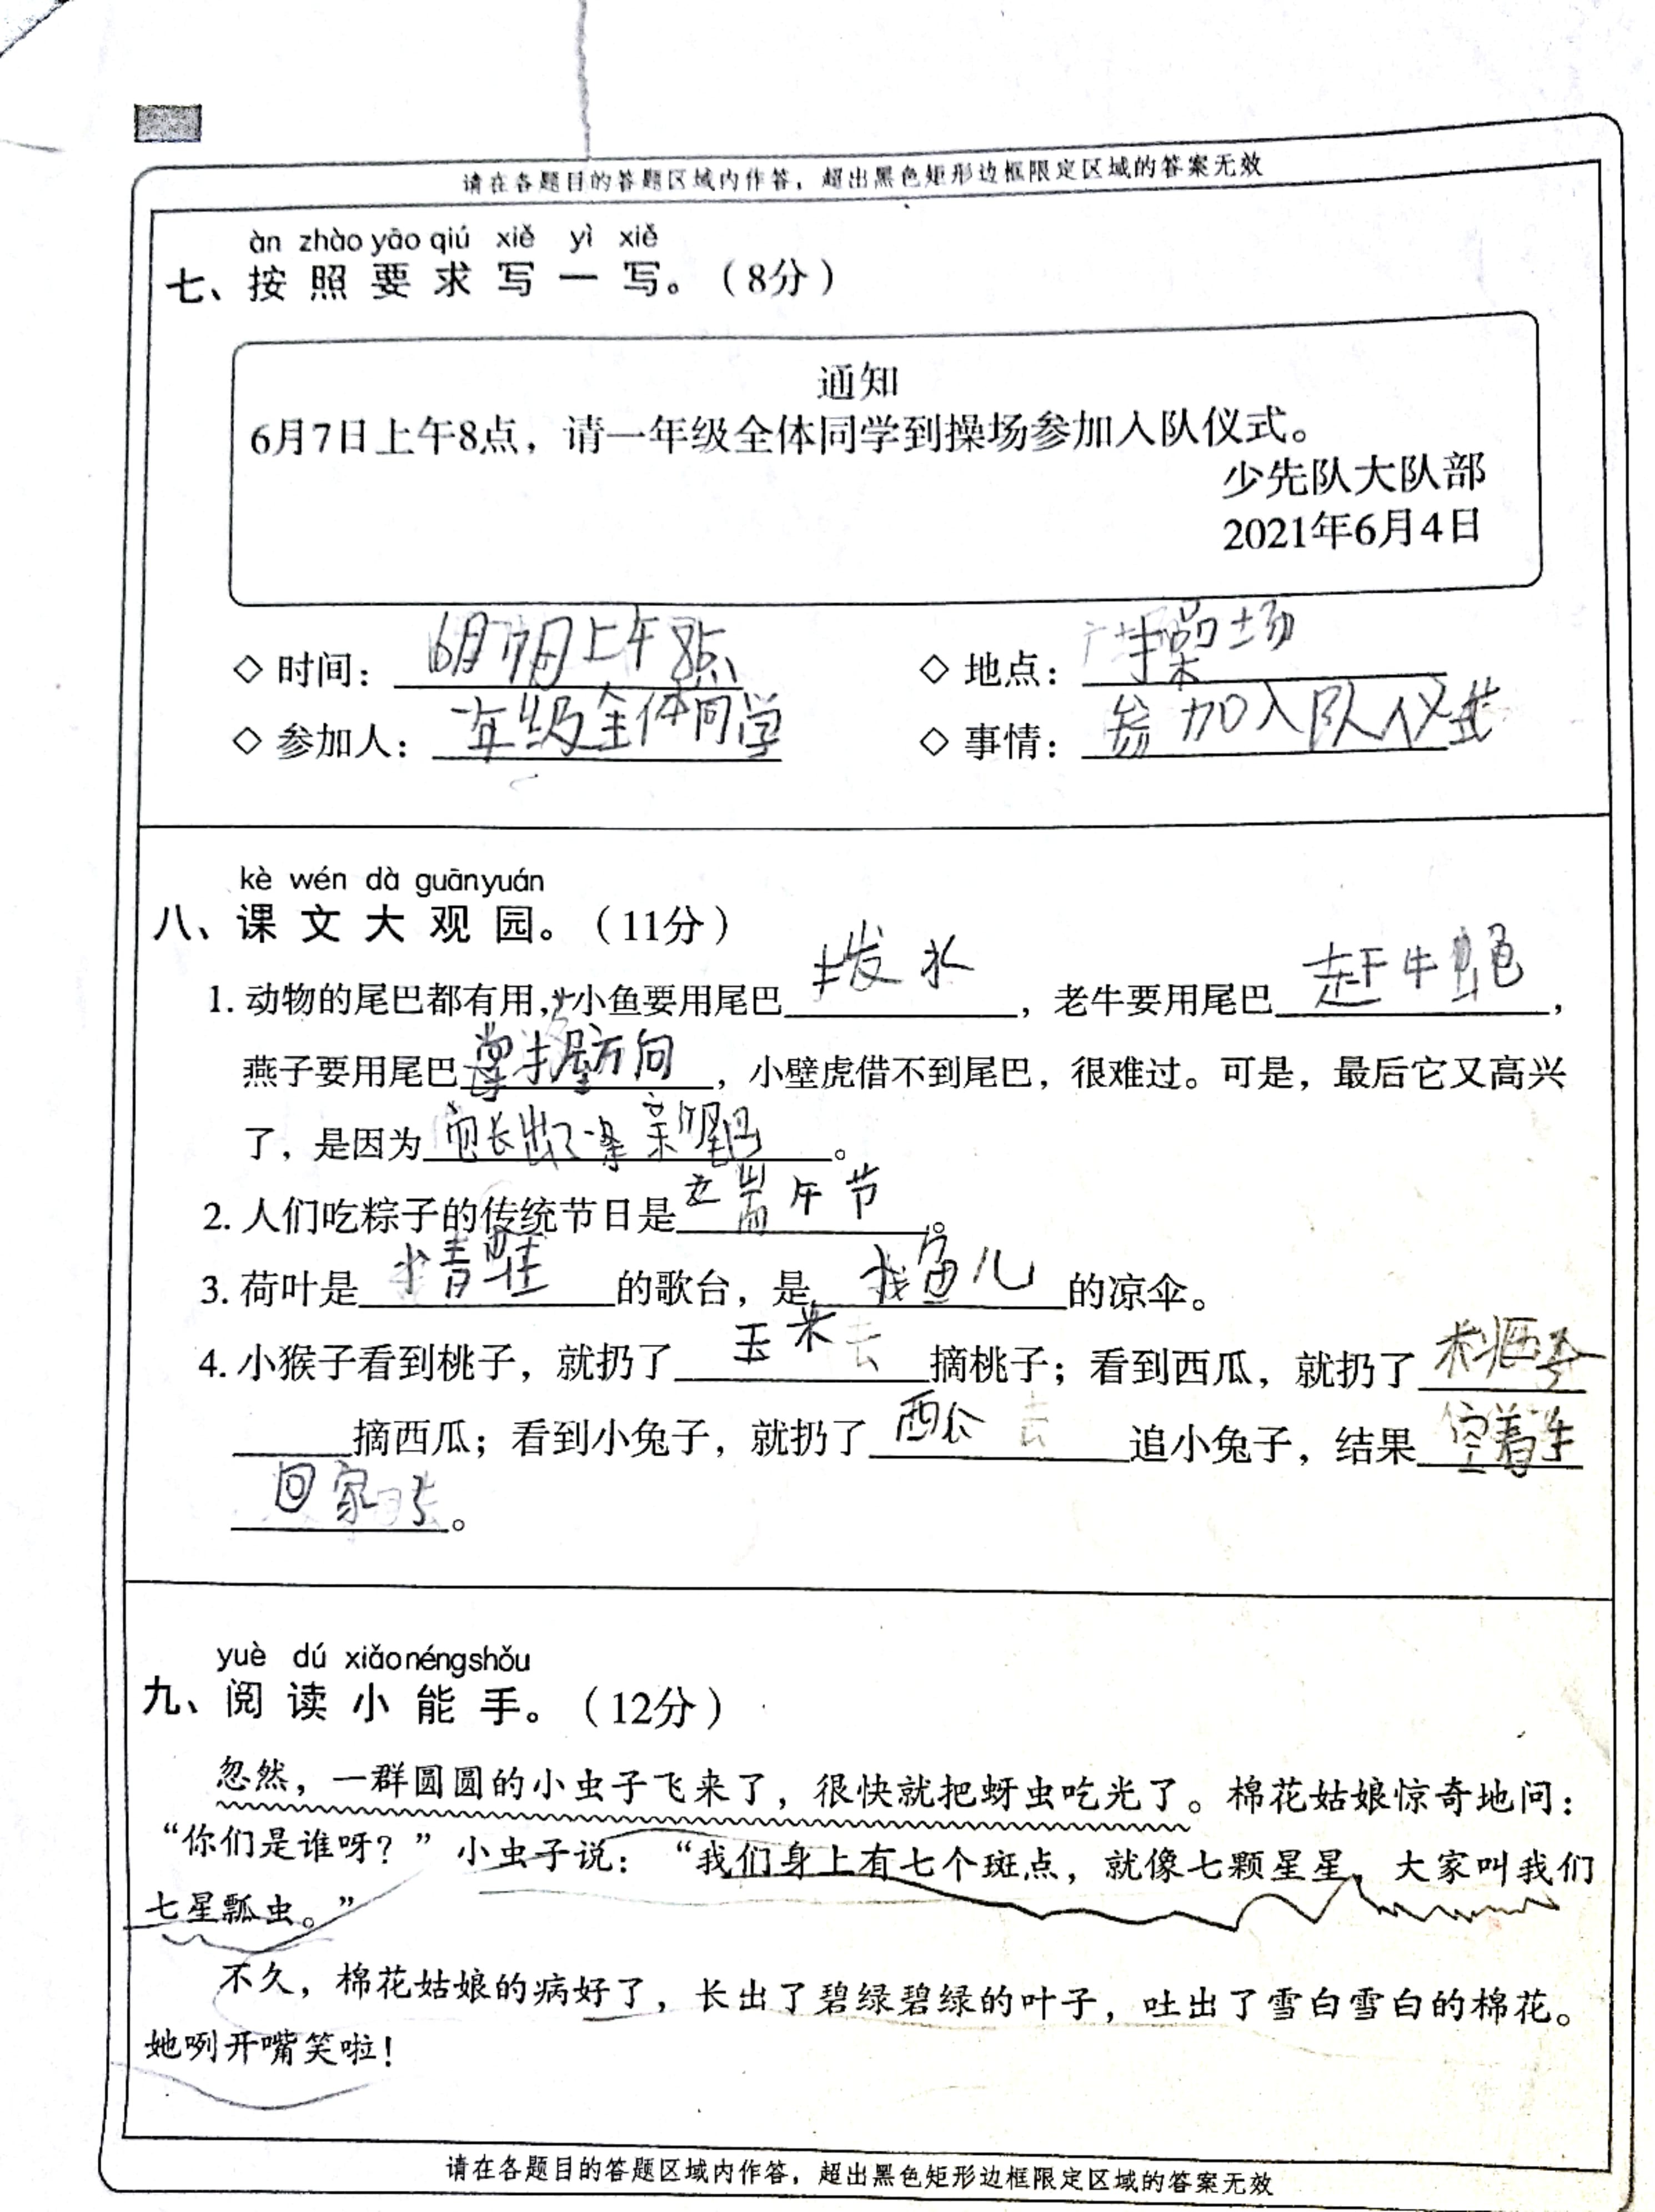 请在各题目的答题区域内作答，超出黑色矩形边框限定区域的答案无效
àn zhào yāo qiú xiě yì xiě
七、按照要求写一写。（8分）
通知
6月7日上午8点，请一年级全体同学到操场参加入队仪式。
少先队大队部
2021年6月4日
◇ 时间：6月7日上午8点 ◇ 地点：操场
◇ 参加人：一年级全体同学 ◇ 事情：参加入队仪式
kè wén dà guānyuán
八、课文大观园。（11分）
1. 动物的尾巴都有用，小鱼要用尾巴拨水，老牛要用尾巴赶牛蝇，
燕子要用尾巴掌握方向，小壁虎借不到尾巴，很难过。可是，最后它又高兴
了，是因为长出了一条新尾巴。
2. 人们吃粽子的传统节日是端午节。
3. 荷叶是青蛙的歌台，是鱼儿的凉伞。
4. 小猴子看到桃子，就扔了玉米去摘桃子；看到西瓜，就扔了
摘西瓜；看到小兔子，就扔了西瓜去追小兔子，结果空着手
回家。
yuè dú xiǎonéngshǒu
九、阅读小能手。（12分）
忽然，一群圆圆的小虫子飞来了，很快就把蚜虫吃光了。棉花姑娘惊奇地问：
“你们是谁呀？”小虫子说：“我们身上有七个斑点，就像七颗星星，大家叫我们
七星瓢虫。”
不久，棉花姑娘的病好了，长出了碧绿碧绿的叶子，吐出了雪白雪白的棉花。
她咧开嘴笑啦！
请在各题目的答题区域内作答，超出黑色矩形边框限定区域的答案无效